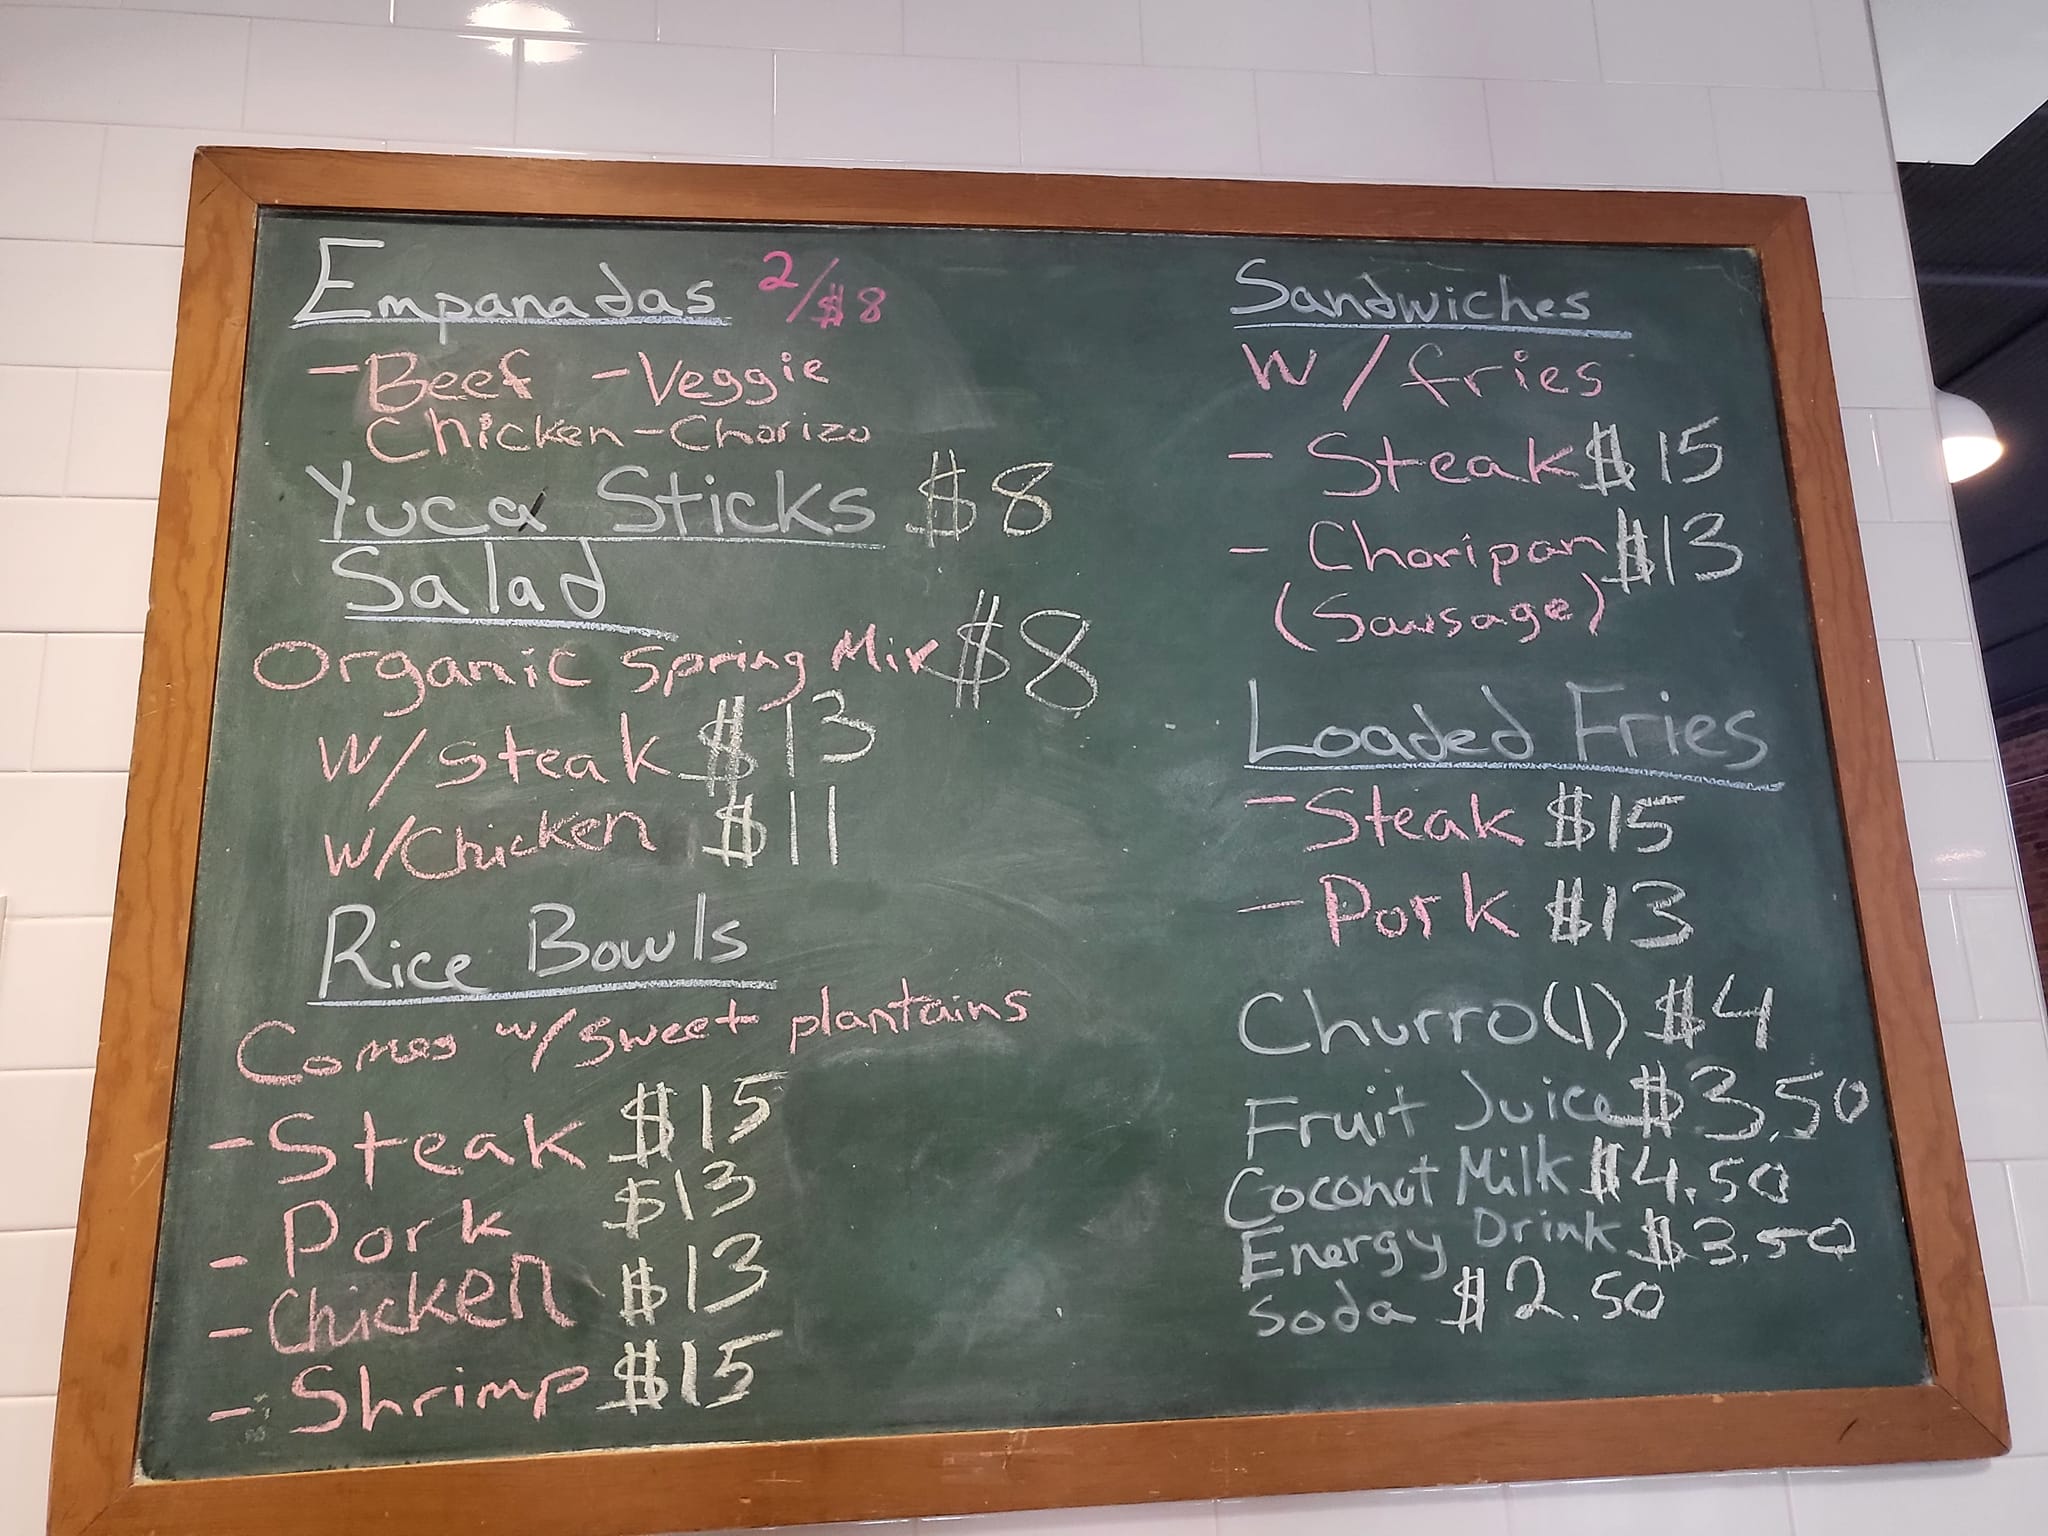 Empanadas 2/$8
-Beef -Veggie
Chicken-Chorizo
Yuca Sticks $8
Salad
Organic Spring Mix $8
W/steak $13
W/Chicken $11
Rice Bowls
Comes w/sweet plantains
-Steak $15
-Pork $13
-Chicken $13
-Shrimp $15
Sandwiches
W/fries
-Steak $15
-Choripan $13
(Sausage)
Loaded Fries
-Steak $15
-Pork $13
Churro(1) $4
Fruit Juice $3.50
Coconut Milk $4.50
Energy Drink $3.50
Soda $2.50